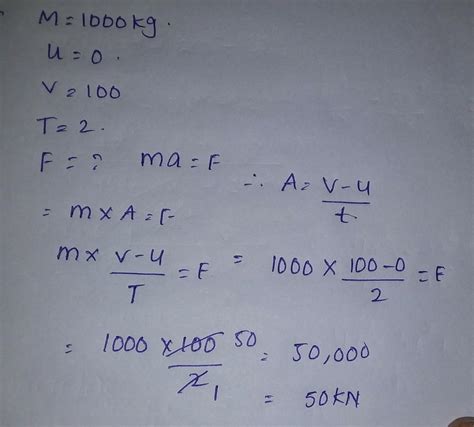 M = 1000kg.
U = 0.
V = 100
T = 2.
F = ? ma = F
∴ A = V-U / t
= m x A = F
m x V-U / T = F = 1000 x 100-0 / 2 = F
= 1000 x 100 50 / 2 1 = 50,000
= 50KN